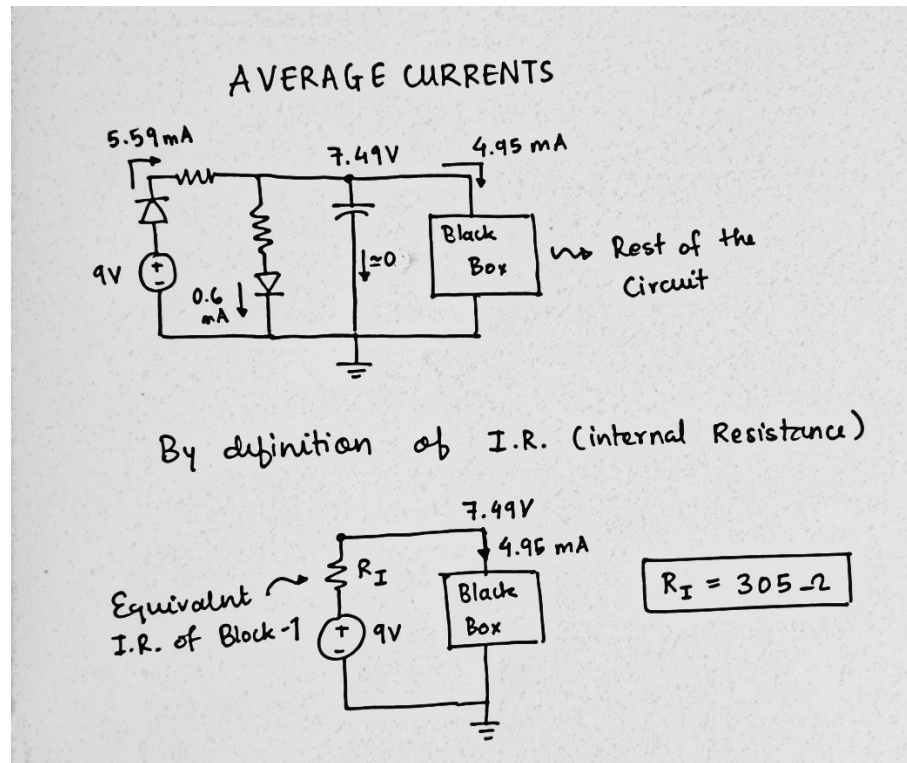 AVERAGE CURRENTS
5.59mA
7.49V
4.95 mA
Black
Box
Rest of the
Circuit
≃0
9V
0.6
mA
By definition of I.R. (internal Resistance)
7.49V
4.95 mA
RI
Equivalnt
I.R. of Block-1
9V
Black
Box
RI = 305 Ω